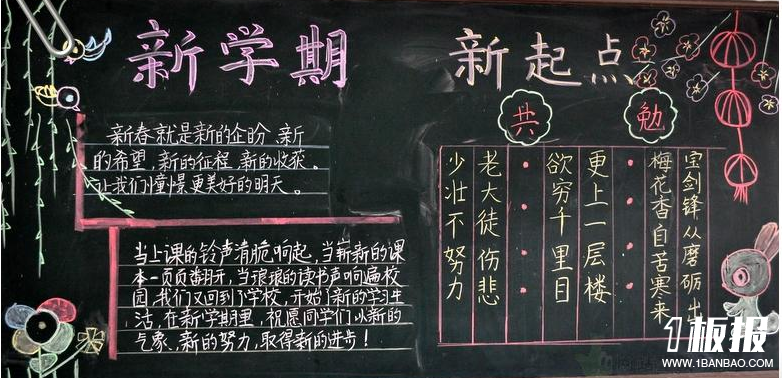 新学期 新起点
新春就是新的企盼、新
的希望,新的征程,新的收获。
让我们憧憬更美好的明天。
当上课的铃声清脆响起,当崭新的课
本一页页翻开,当琅琅的读书声响遍校
园,我们又回到了学校,开始了新的学习生
活,在新学期里,祝愿同学们以新的
气象、新的努力,取得新的进步!
共勉
少壮不努力
老大徒伤悲
欲穷千里目
更上一层楼
梅花香自苦寒来
宝剑锋从磨砺出
1板报
WWW.1BANBAO.COM